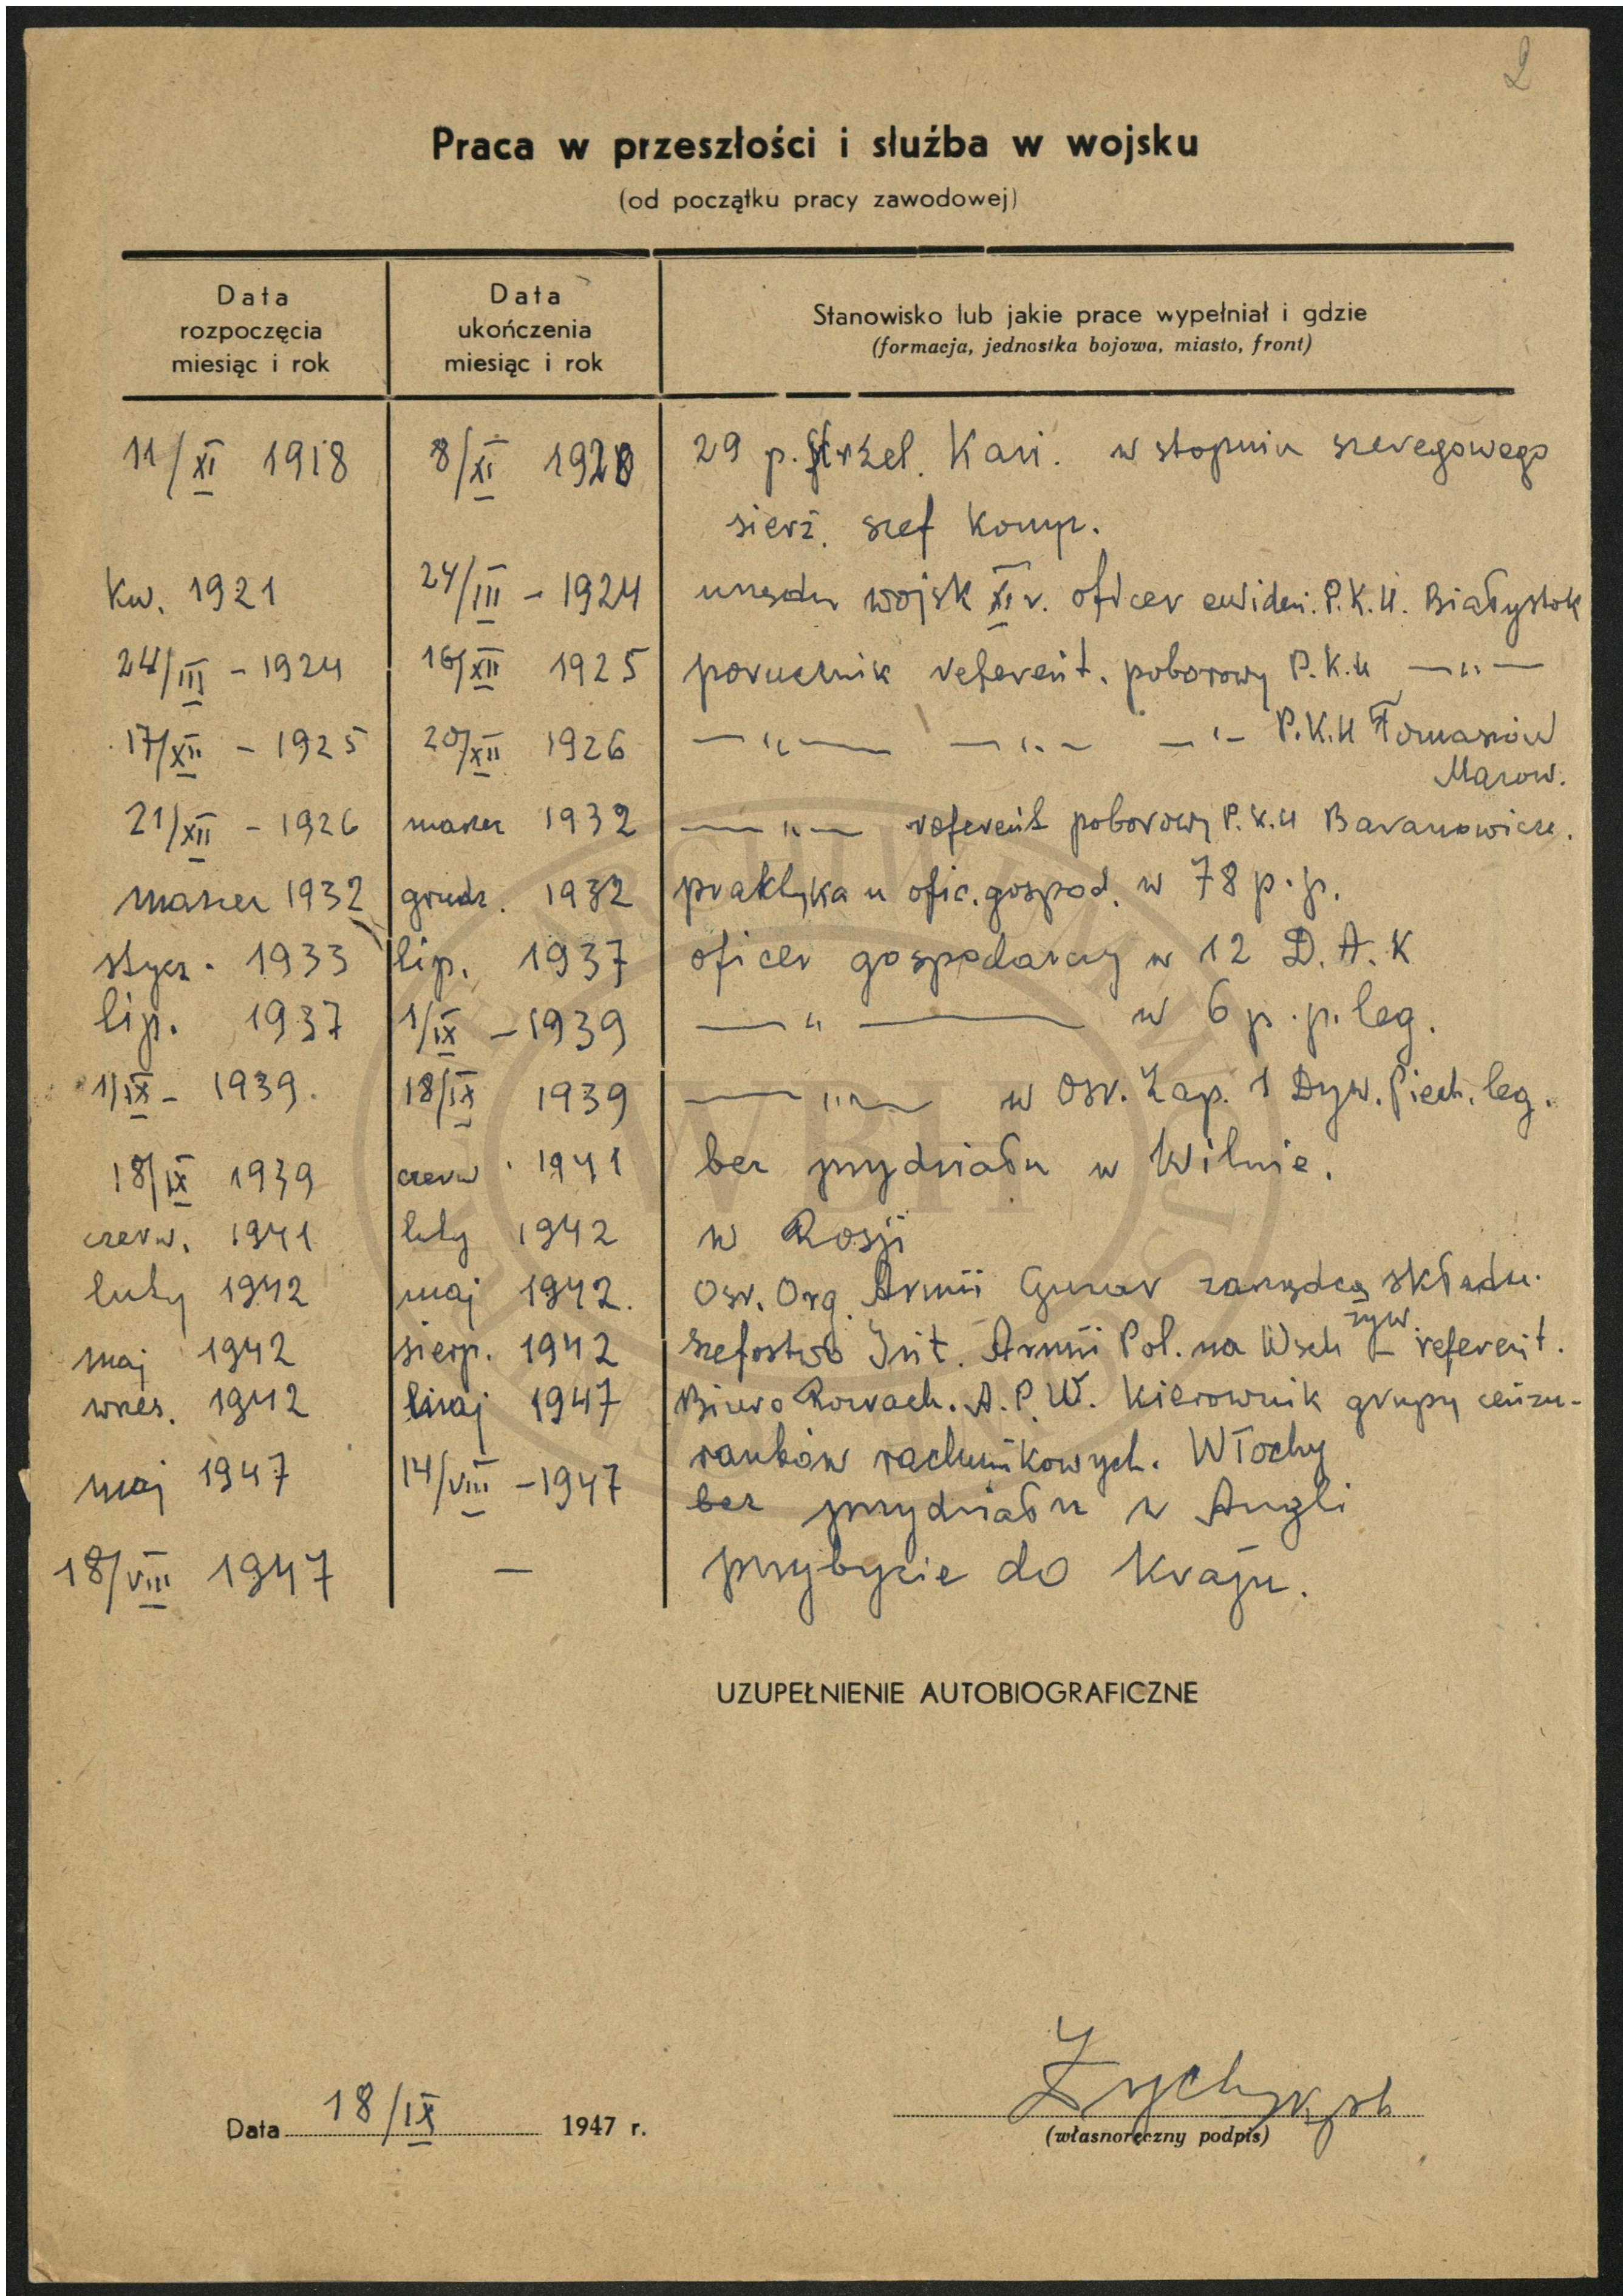 2
Praca w przeszłości i służba w wojsku
(od początku pracy zawodowej)
Data rozpoczęcia miesiąc i rok
Data ukończenia miesiąc i rok
Stanowisko lub jakie prace wypełniał i gdzie
(formacja, jednostka bojowa, miasto, front)
11/XI 1918 8/XI 1920 29 p. Strzel. Kan. w stopniu szeregowego
sierż. szef komp.
Kw. 1921 24/III - 1924 urzędn wojsk XI r. oficer ewiden. P.K.U. Białystok
24/III - 1924 16/XII 1925 porucznik referent. poborowy P.K.U —"—
17/XII - 1925 20/XII 1926 —"— —"— —"— P.K.U Tomaszów
Mazow.
21/XII - 1926 marzec 1932 —"— referent poborowy P.K.U Baranowicze.
marzec 1932 grudz. 1932 praktyka u ofic. gospod. w 78 p.p.
stycz. 1933 lip. 1937 oficer gospodarczy w 12 D.A.K
lip. 1937 1/IX - 1939 —"— w 6 p.p. leg.
1/IX - 1939. 18/IX 1939 —"— w Ośr. Zap. 1 Dyw. Piech. leg.
18/IX 1939 czerw. 1941 bez przydziału w Wilnie.
czerw. 1941 luty 1942 w Rosji
luty 1942 maj 1942. Ośr. Org. Armii Guzar zarządca składu.
żyw.
maj 1942 sierp. 1942 Szefostwo Int. Armii Pol. na Wsch - referent.
wrzes. 1942 maj 1947 Biuro Rozrach. A.P.W. Kierownik grupy cenzu-
rantów rachunkowych. Włochy
maj 1947 14/VIII - 1947 bez przydziału w Angli
18/VIII 1947 — przybycie do Kraju.
UZUPEŁNIENIE AUTOBIOGRAFICZNE
Data 18/IX 1947 r.
(własnoręczny podpis)
ARCHIWUM
WBH